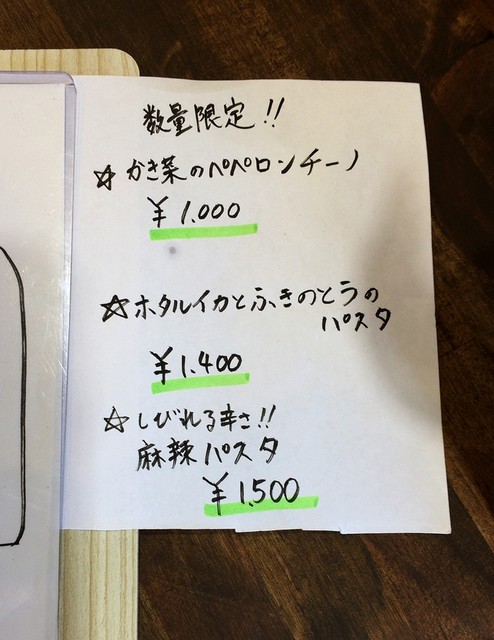 数量限定!!
☆かき菜のペペロンチーノ
¥1.000
☆ホタルイカとふきのとうの
パスタ
¥1.400
☆しびれる辛さ!!
麻辣パスタ
¥1,500